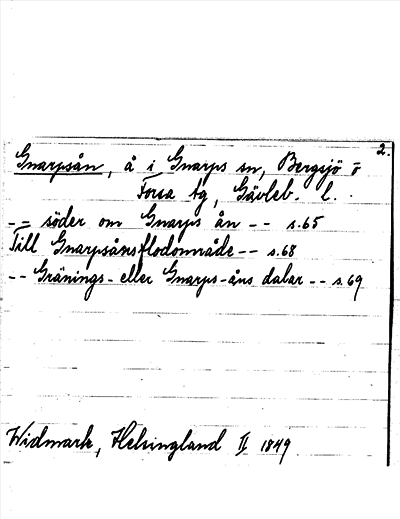 2.
Gnarpsån, å i Gnarps sn, Bergsjö o
Forsa tg, Gävleb. l.
-- söder om Gnarps ån -- s.65
Till Gnarpsånsflodområde -- s.68
-- Gränings- eller Gnarps-åns dalar -- s.69
Widmark, Helsingland II, 1849